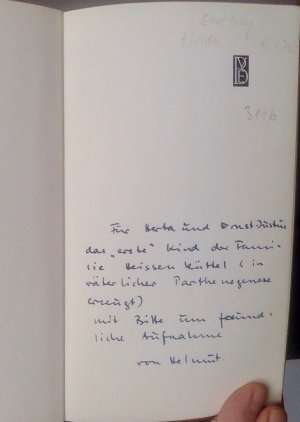 Für Herta und Ernst-Justus
das „erste" Kind der Fami-
lie Heissenbüttel (in
väterlicher Parthenogenese
erzeugt)
mit Bitte um freund-
liche Aufnahme
von Helmut.